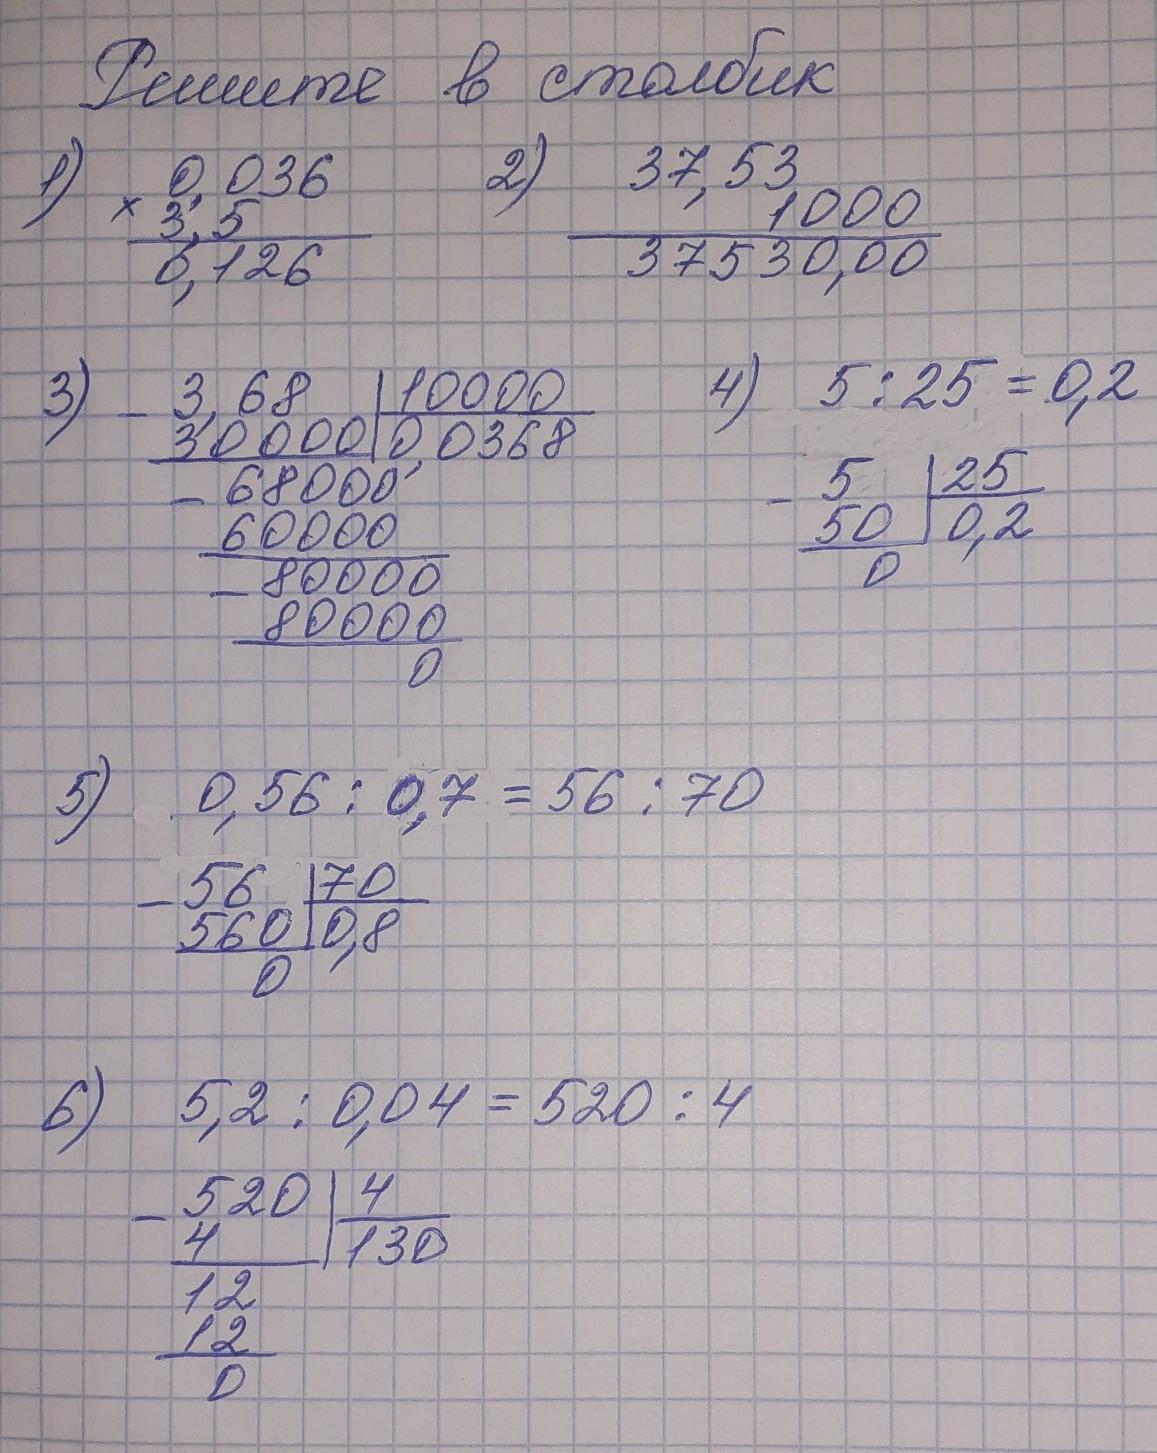 Решите в столбик
1) 0,036
× 3,5
0,126
2) 37,53
1000
37530,00
3) - 3,68 | 10000
30000 | 0,0368
- 68000
60000
- 80000
80000
0
4) 5 : 25 = 0,2
- 5 | 25
50 | 0,2
0
5) 0,56 : 0,7 = 56 : 70
- 56 | 70
560 | 0,8
0
6) 5,2 : 0,04 = 520 : 4
- 520 | 4
4 | 130
12
12
0